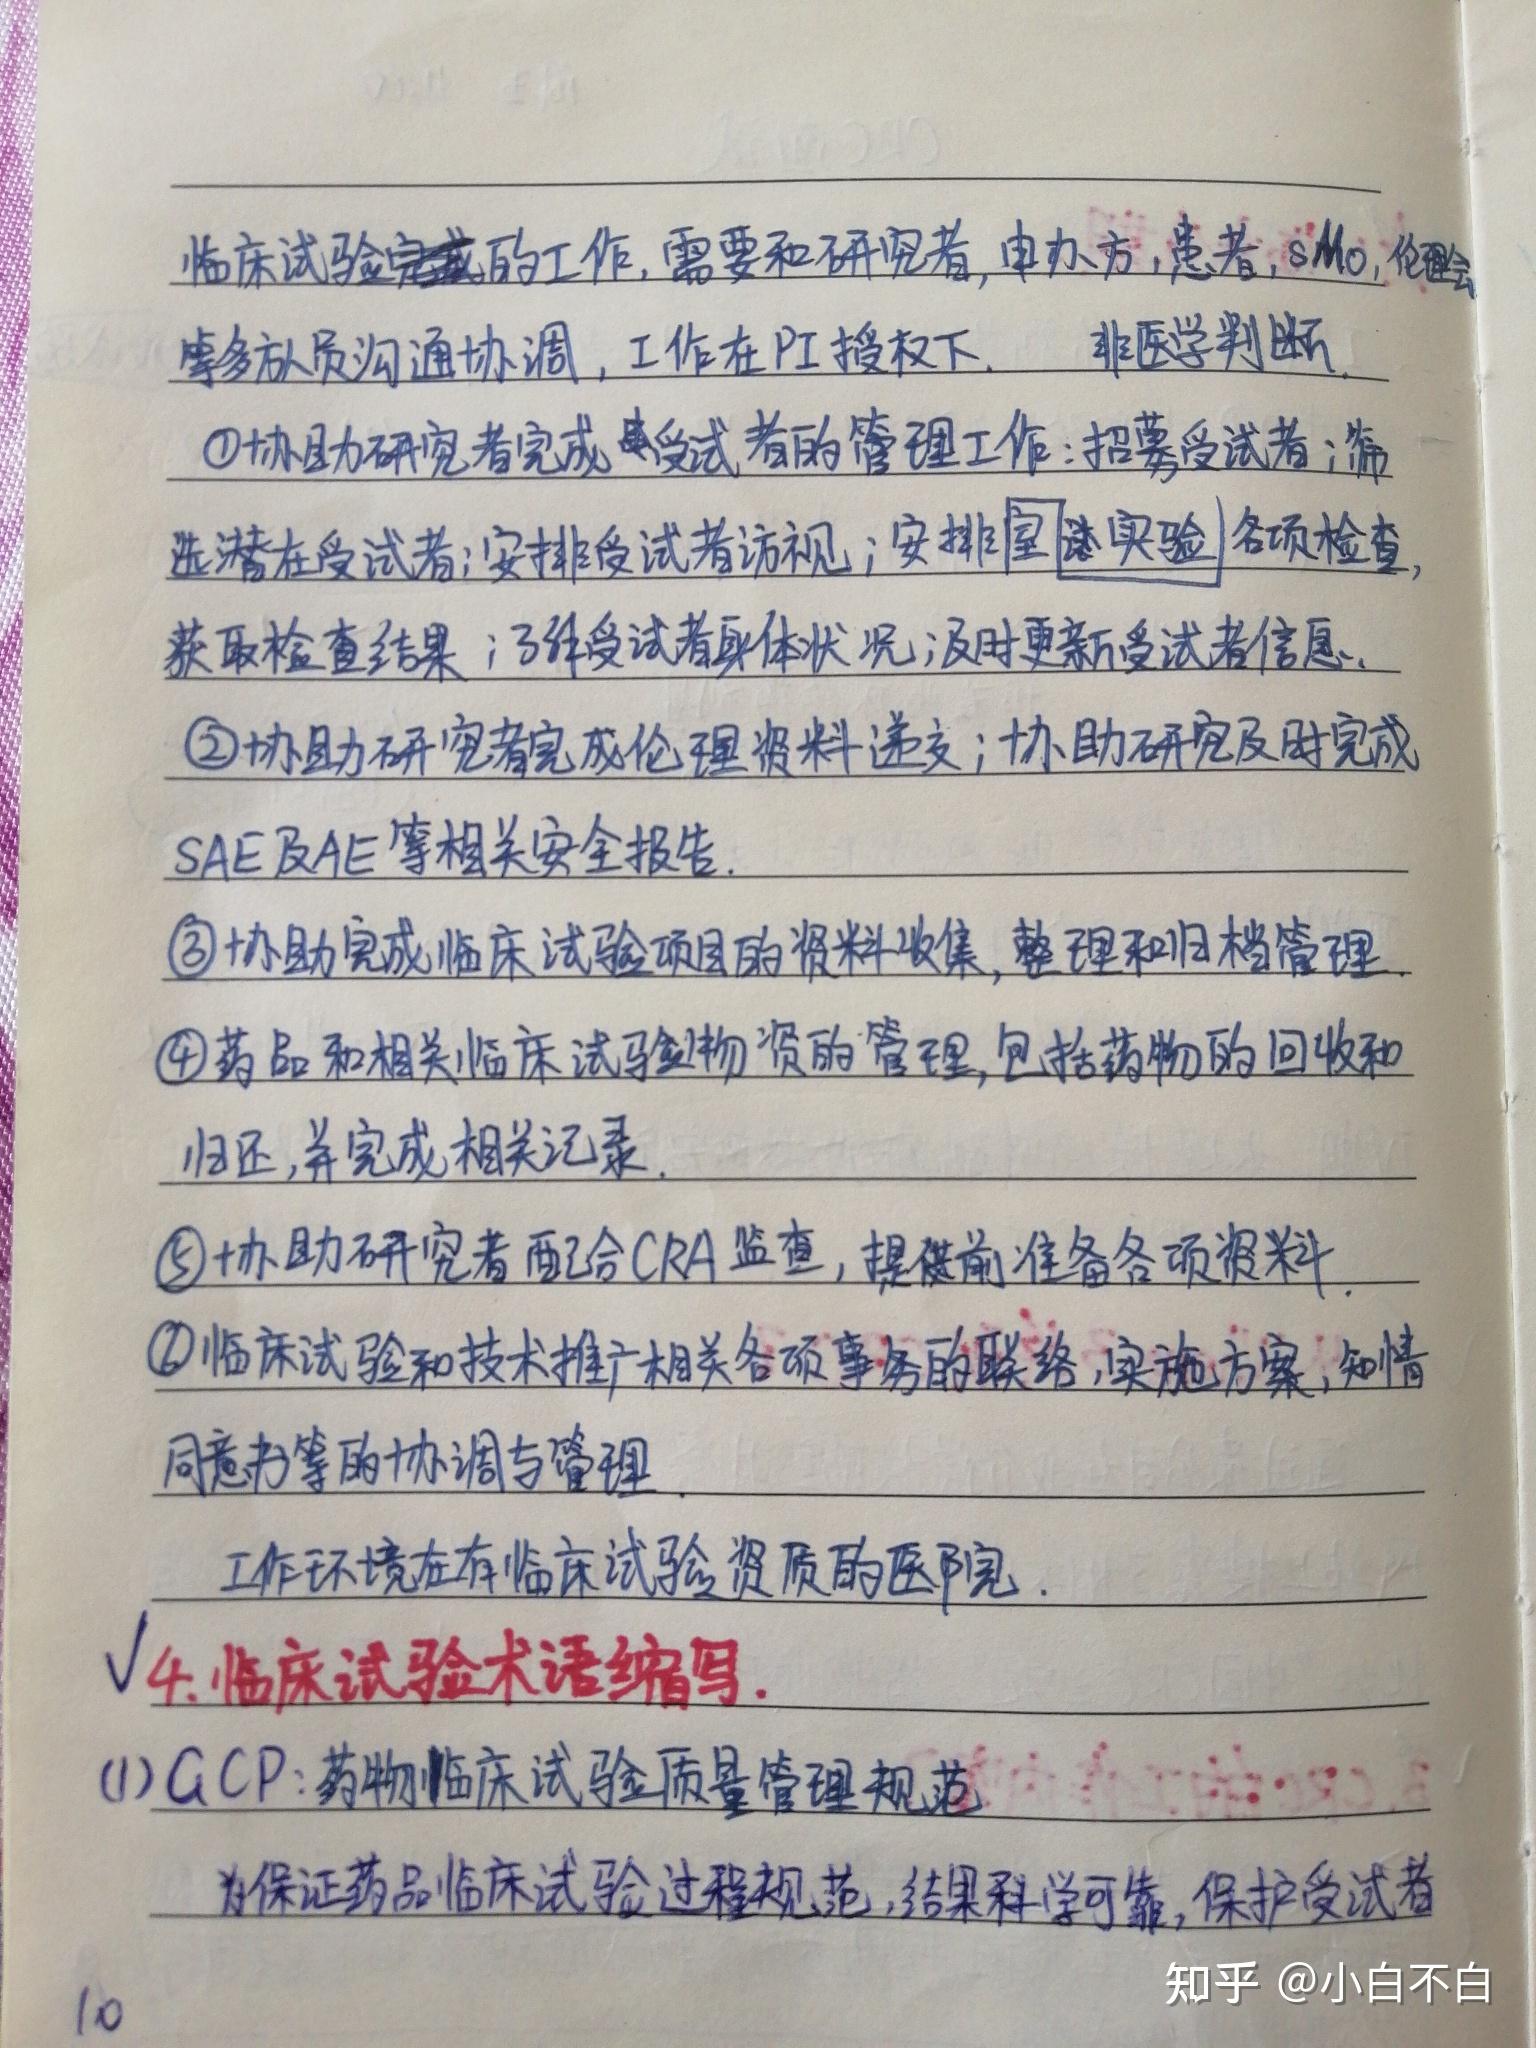 临床试验的工作,需要和研究者,申办方,患者,SMO,伦理会
等多方人员沟通协调,工作在PI授权下. 非医学判断.
①协助研究者完成受试者的管理工作:招募受试者;筛
选潜在受试者;安排受试者访视;安排室实验各项检查,
获取检查结果;了解受试者身体状况;及时更新受试者信息.
②协助研究者完成伦理资料递交;协助研究及时完成
SAE及AE等相关安全报告.
③协助完成临床试验项目的资料收集,整理和归档管理.
④药品和相关临床试验物资的管理,包括药物的回收和
归还,并完成相关记录.
⑤协助研究者配合CRA监查,提前准备各项资料.
⑥临床试验和技术推广相关各项事务的联络,实施方案,知情
同意书等的协调与管理.
工作环境在有临床试验资质的医院.
√4.临床试验术语缩写.
(1)GCP:药物临床试验质量管理规范
为保证药品临床试验过程规范,结果科学可靠,保护受试者
10
知乎 @小白不白